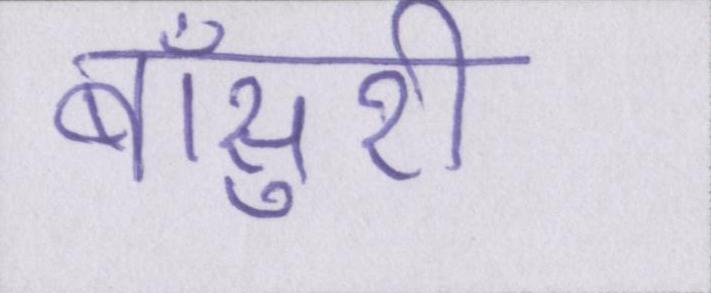 बाँसुरी